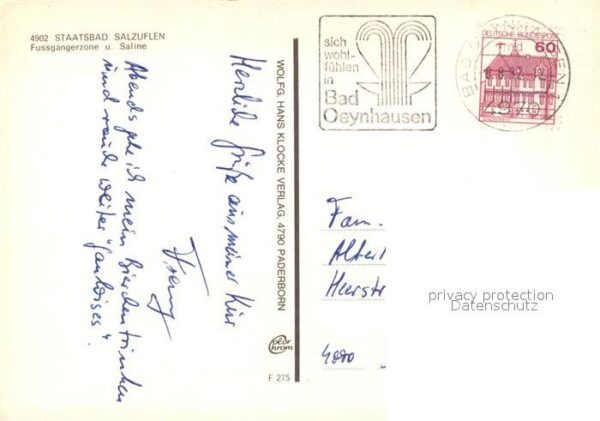 4902 STAATSBAD SALZUFLEN
Fussgängerzone u. Saline
Herzliche Grüße aus meiner Kur
Franz
Abends geh ich mein Bierchen trinken
und rauche weiter "Gauloises"
WOLFG. HANS KLOCKE VERLAG, 4790 PADERBORN
color chrom
F 275
sich
wohl-
fühlen
in
Bad
Oeynhausen
DEUTSCHE BUNDESPOST
60
BAD OEYNHAUSEN 1
4970
Fam.
Albert
Heerstr
4000
privacy protection
Datenschutz